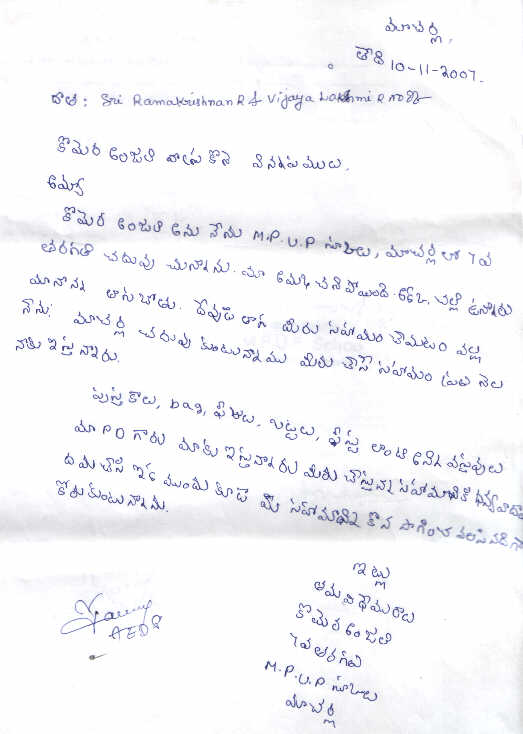 మాచర్ల,
తేది 10-11-2007.
దాత: Sri Ramakrishnan R & Vijaya Lakshmi R గార్కి
కొమెర అంజలి వ్రాసు కొనె విన్నపములు.
అమ్మా
కొమెర అంజలి అను నేను M.P.U.P స్కూలు, మాచర్ల లో 7వ
తరగతి చదువు చున్నాను. మా అమ్మ చనిపోయింది. చెల్లి ఉన్నారు
మానాన్న తాగుబోతు. దేవుడి లాగ మీరు సహాయం చేయటం వల్ల
నేను మాచర్ల చదువు కుంటున్నాము మీరు చేసే సహాయం ప్రతి నెల
నాకు ఇస్తున్నారు.
పుస్తకాలు, bag, ఫీజులు, బట్టలు, పేస్టు లాంటి అనేక వస్తువులు
మా PO గారు మాకు ఇస్తున్నారు మీరు చేస్తున్న సహాయానికి ధన్యవాదాలు
దయచేసి ఇక ముందు కూడా మీ సహాయాన్ని కొన సాగించ వలసినదిగా
కోరుకుంటున్నాను.
ఇట్లు
తమ విధేయురాలు
కొమెర అంజలి
7వ తరగతి
M.P.U.P స్కూలు
మాచర్ల